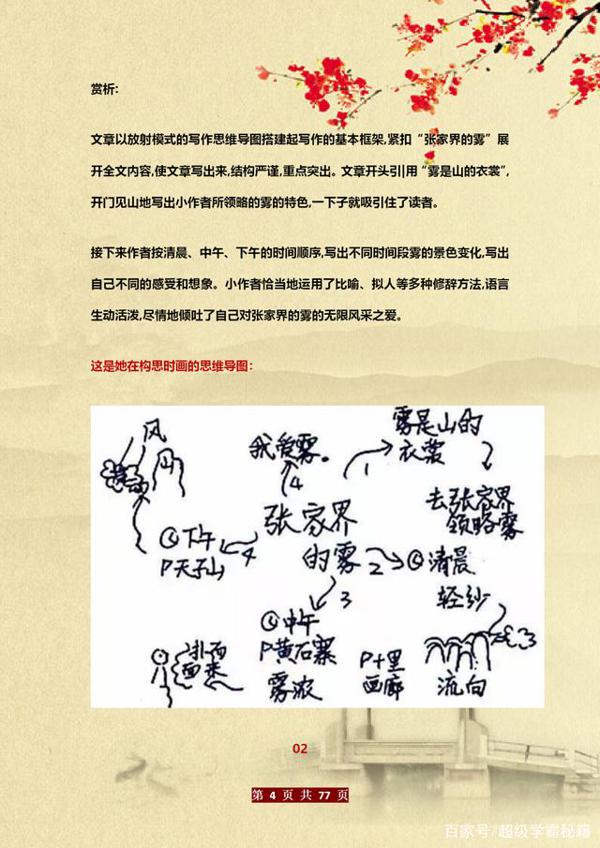 赏析:
文章以放射模式的写作思维导图搭建起写作的基本框架,紧扣“张家界的雾”展
开全文内容,使文章写出来,结构严谨,重点突出。文章开头引用“雾是山的衣裳”,
开门见山地写出小作者所领略的雾的特色,一下子就吸引住了读者。
接下来作者按清晨、中午、下午的时间顺序,写出不同时间段雾的景色变化,写出
自己不同的感受和想象。小作者恰当地运用了比喻、拟人等多种修辞方法,语言
生动活泼,尽情地倾吐了自己对张家界的雾的无限风采之爱。
这是她在构思时画的思维导图:
雾是山的
衣裳
1
去张家界
领略雾
张家界
的雾
2
清晨
轻纱
P十里
画廊
流向
3
中午
P黄石寨
雾浓
扑面
而来
4
下午
P天子山
风
4
我爱雾。
02
第 4 页 共 77 页
百家号/超级学霸秘籍